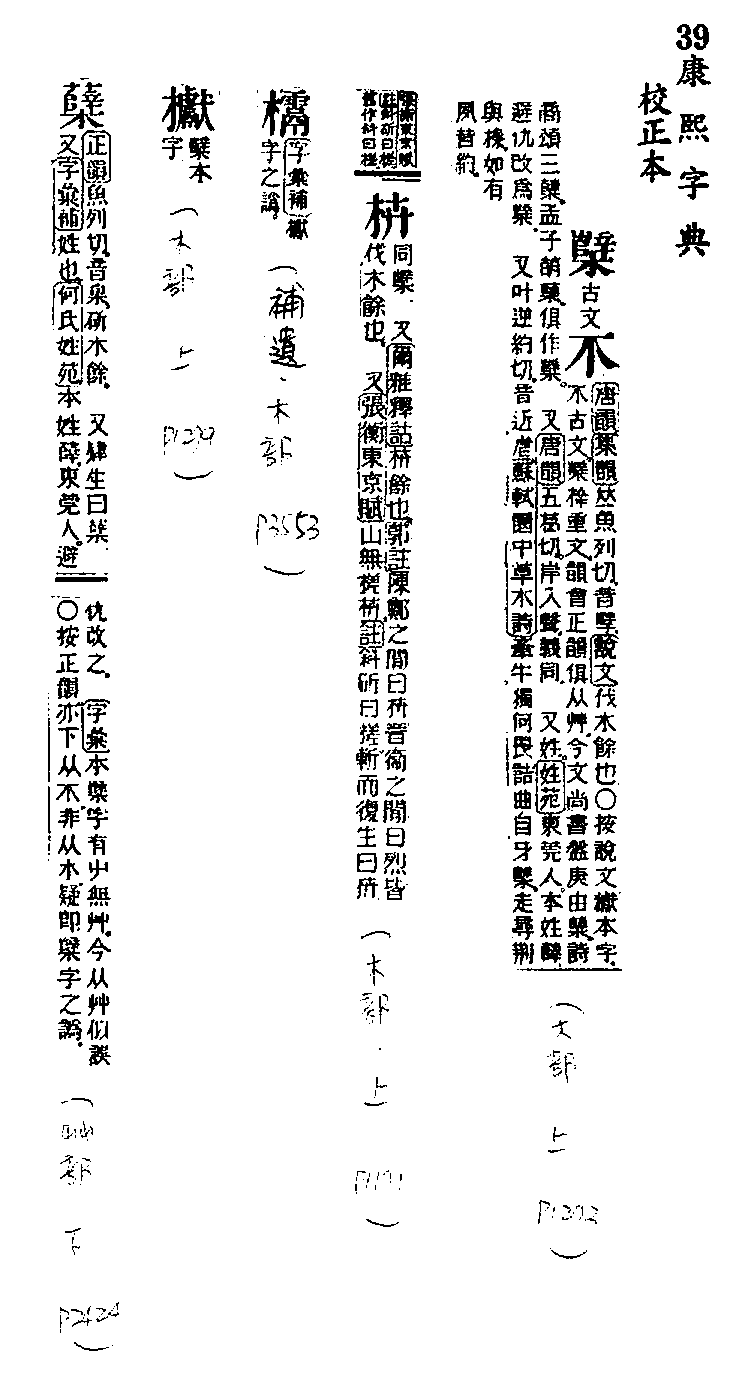 39
康熙字典
校正本
櫱 古文 𣎴
唐韻集韻𠀤魚列切音孼說文伐木餘也○按說文櫱本字
𣎴古文櫱栓重文韻會正韻俱从艸今文尚書盤庚由櫱詩
商頌三櫱孟子萌櫱俱作櫱 又唐韻五葛切岸入聲義同 又姓姓苑東莞人本姓薛
避仇改爲櫱 又叶逆約切音近虐蘇軾園中草木詩牽牛獨何畏詰曲自牙櫱走尋荆
與榛如有
夙昔約
枿
同櫱 又爾雅釋詁枿餘也郭註陳鄭之閒曰枿晉衞之閒曰烈皆
伐木餘也 又張衡東京賦山無槎枿註斜斫曰槎斬而復生曰枿
字彙補
字之譌
櫱本
字
正韻魚列切音臬斫木餘 又肄生曰櫱
又字彙補姓也何氏姓苑本姓薛東莞人避
仇改之 字彙本櫱字有屮無艸今从艸似誤
○按正韻亦下从木非从木疑卽櫱字之譌
(木部 上 P1292)
(木部·上 P1191)
(補遺·木部 P3553)
(木部 上 P1279)
(艸部 下 P2424)